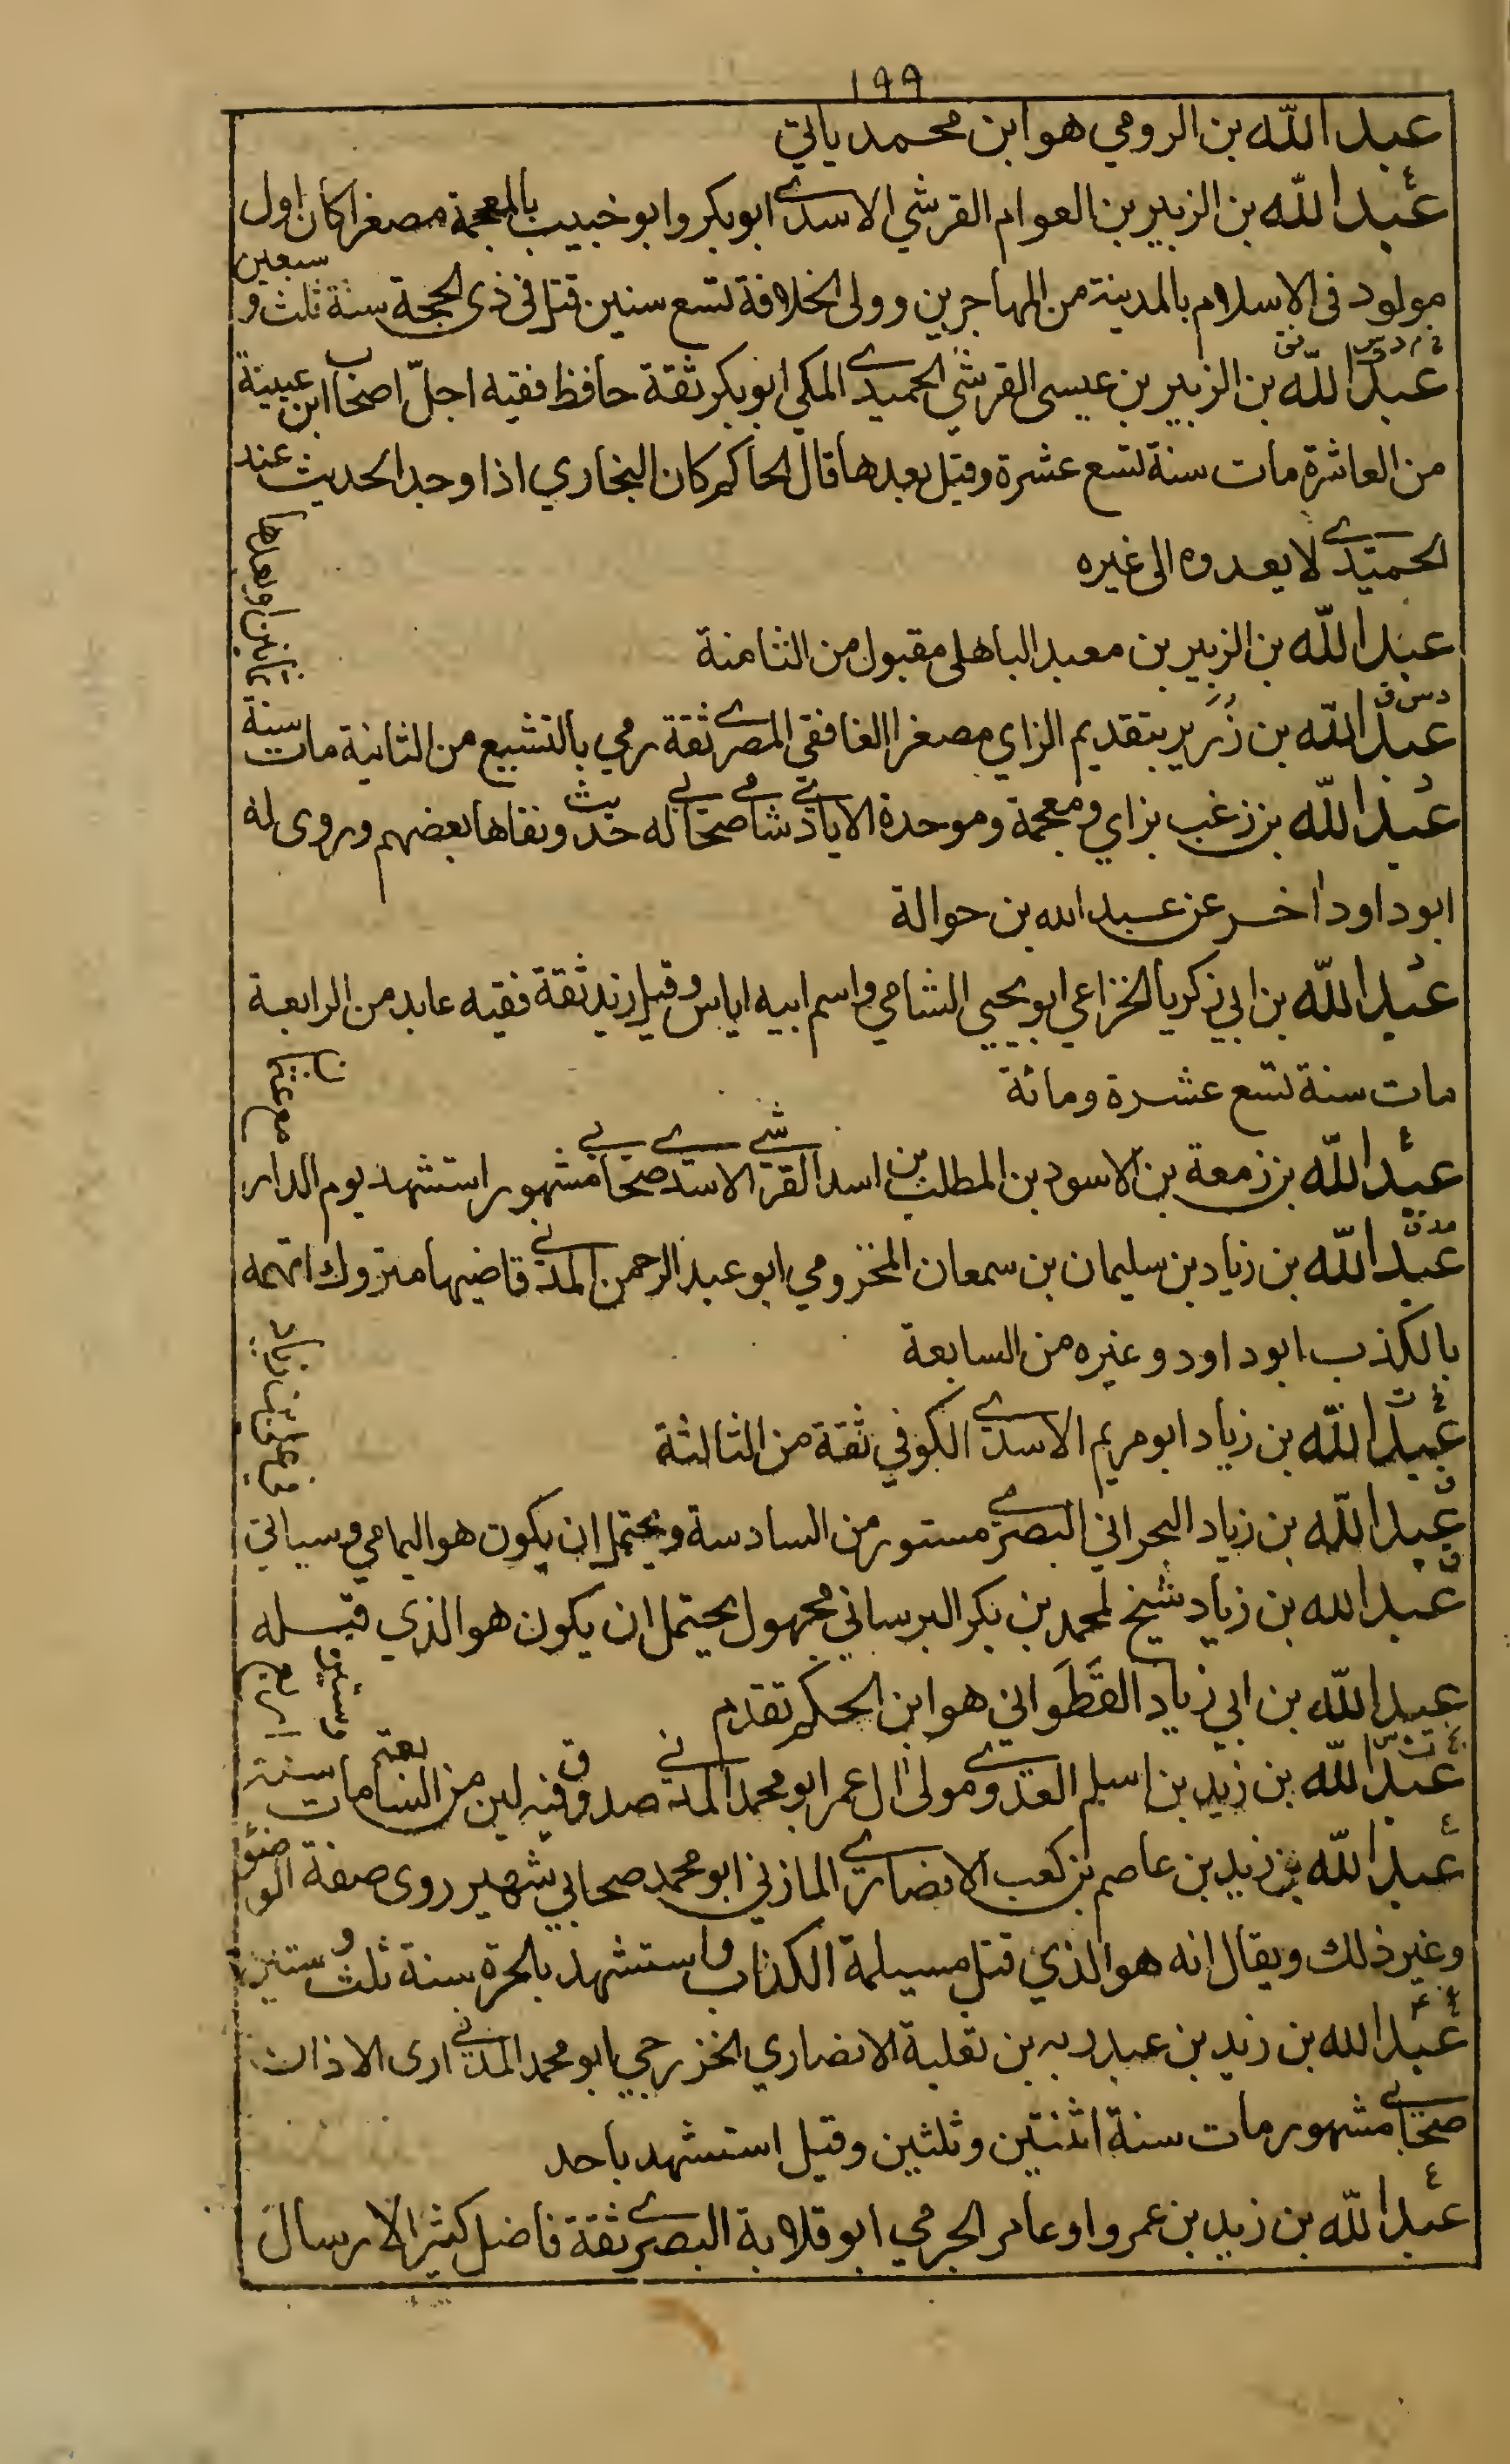 ١٩٩
عبد الله بن الرومي هو ابن محمد ياتي
ع
عبد الله بن الزبير بن العوام القرشي الاسدي ابو بكر وابو خبيب بالمعجمة مصغرا كان اول
مولود في الاسلام بالمدينة من المهاجرين وولى الخلافة تسع سنين قتل في ذي الحجة سنة ثلث و سبعين
خ م د س فق
عبد الله بن الزبير بن عيسى القرشي الحميدي المكي ابو بكر ثقة حافظ فقيه اجلّ اصحاب ابن عيينة
من العاشرة مات سنة تسع عشرة وقيل بعدها قال الحاكم كان البخاري اذا وجد الحديث عند
الحميدي لا يعدوه الى غيره
عبد الله بن الزبير بن معبد الباهلى مقبول من الثامنة
د س ق
عبد الله بن زُرَير بتقديم الزاي مصغرا الغافقي المصري ثقة رمي بالتشيع من الثانية مات سنة
ثمانين او بعدها
د
عبد الله بن زغب بزاي ومعجمة وموحدة الايادي شامي صحابي له حديث ونفاها بعضهم وروى له
ابو داود اخر عن عبد الله بن حوالة
د
عبد الله بن ابي زكريا الخزاعي ابو يحيى الشامي واسم ابيه اياس وقيل زيد ثقة فقيه عابد من الرابعة
مات سنة تسع عشرة ومائة
ع
عبد الله بن زمعة بن الاسود بن المطلب بن اسد القرشي الاسدي صحابي مشهور استشهد يوم الدار
مع عثمان
مد ق
عبد الله بن زياد بن سليمان بن سمعان المخزومي ابو عبد الرحمن المدني قاضيها متروك اتهمه
بالكذب ابو داود وغيره من السابعة
خ ت
عبد الله بن زياد ابو مريم الاسدي الكوفي ثقة من الثالثة
ق
عبد الله بن زياد البحراني البصري مستور من السادسة ويحتمل ان يكون هو اليمامي وسياتي
في علي بن زياد
ق
عبد الله بن زياد شيخ لمحمد بن بكر البرساني مجهول يحتمل ان يكون هو الذي قبله
عبد الله بن ابي زياد القَطَواني هو ابن الحكم تقدم
عبد الله بن زيد بن اسلم العدوي مولى ال عمر ابو محمد المدني صدوق فيه لين من السابعة مات سنة
اربع وستين
ع
عبد الله بن زيد بن عاصم بن كعب الانصاري المازني ابو محمد صحابي شهير روى صفة الوضوء
وغير ذلك ويقال انه هو الذي قتل مسيلمة الكذاب واستشهد بالحرة سنة ثلث وستين
عبد الله بن زيد بن عبد ربه بن ثعلبة الانصاري الخزرجي ابو محمد المدني ارى الاذان
صحابي مشهور مات سنة اثنتين وثلثين وقيل استشهد باحد
ع
عبد الله بن زيد بن عمرو او عامر الجرمي ابو قلابة البصري ثقة فاضل كثير الارسال